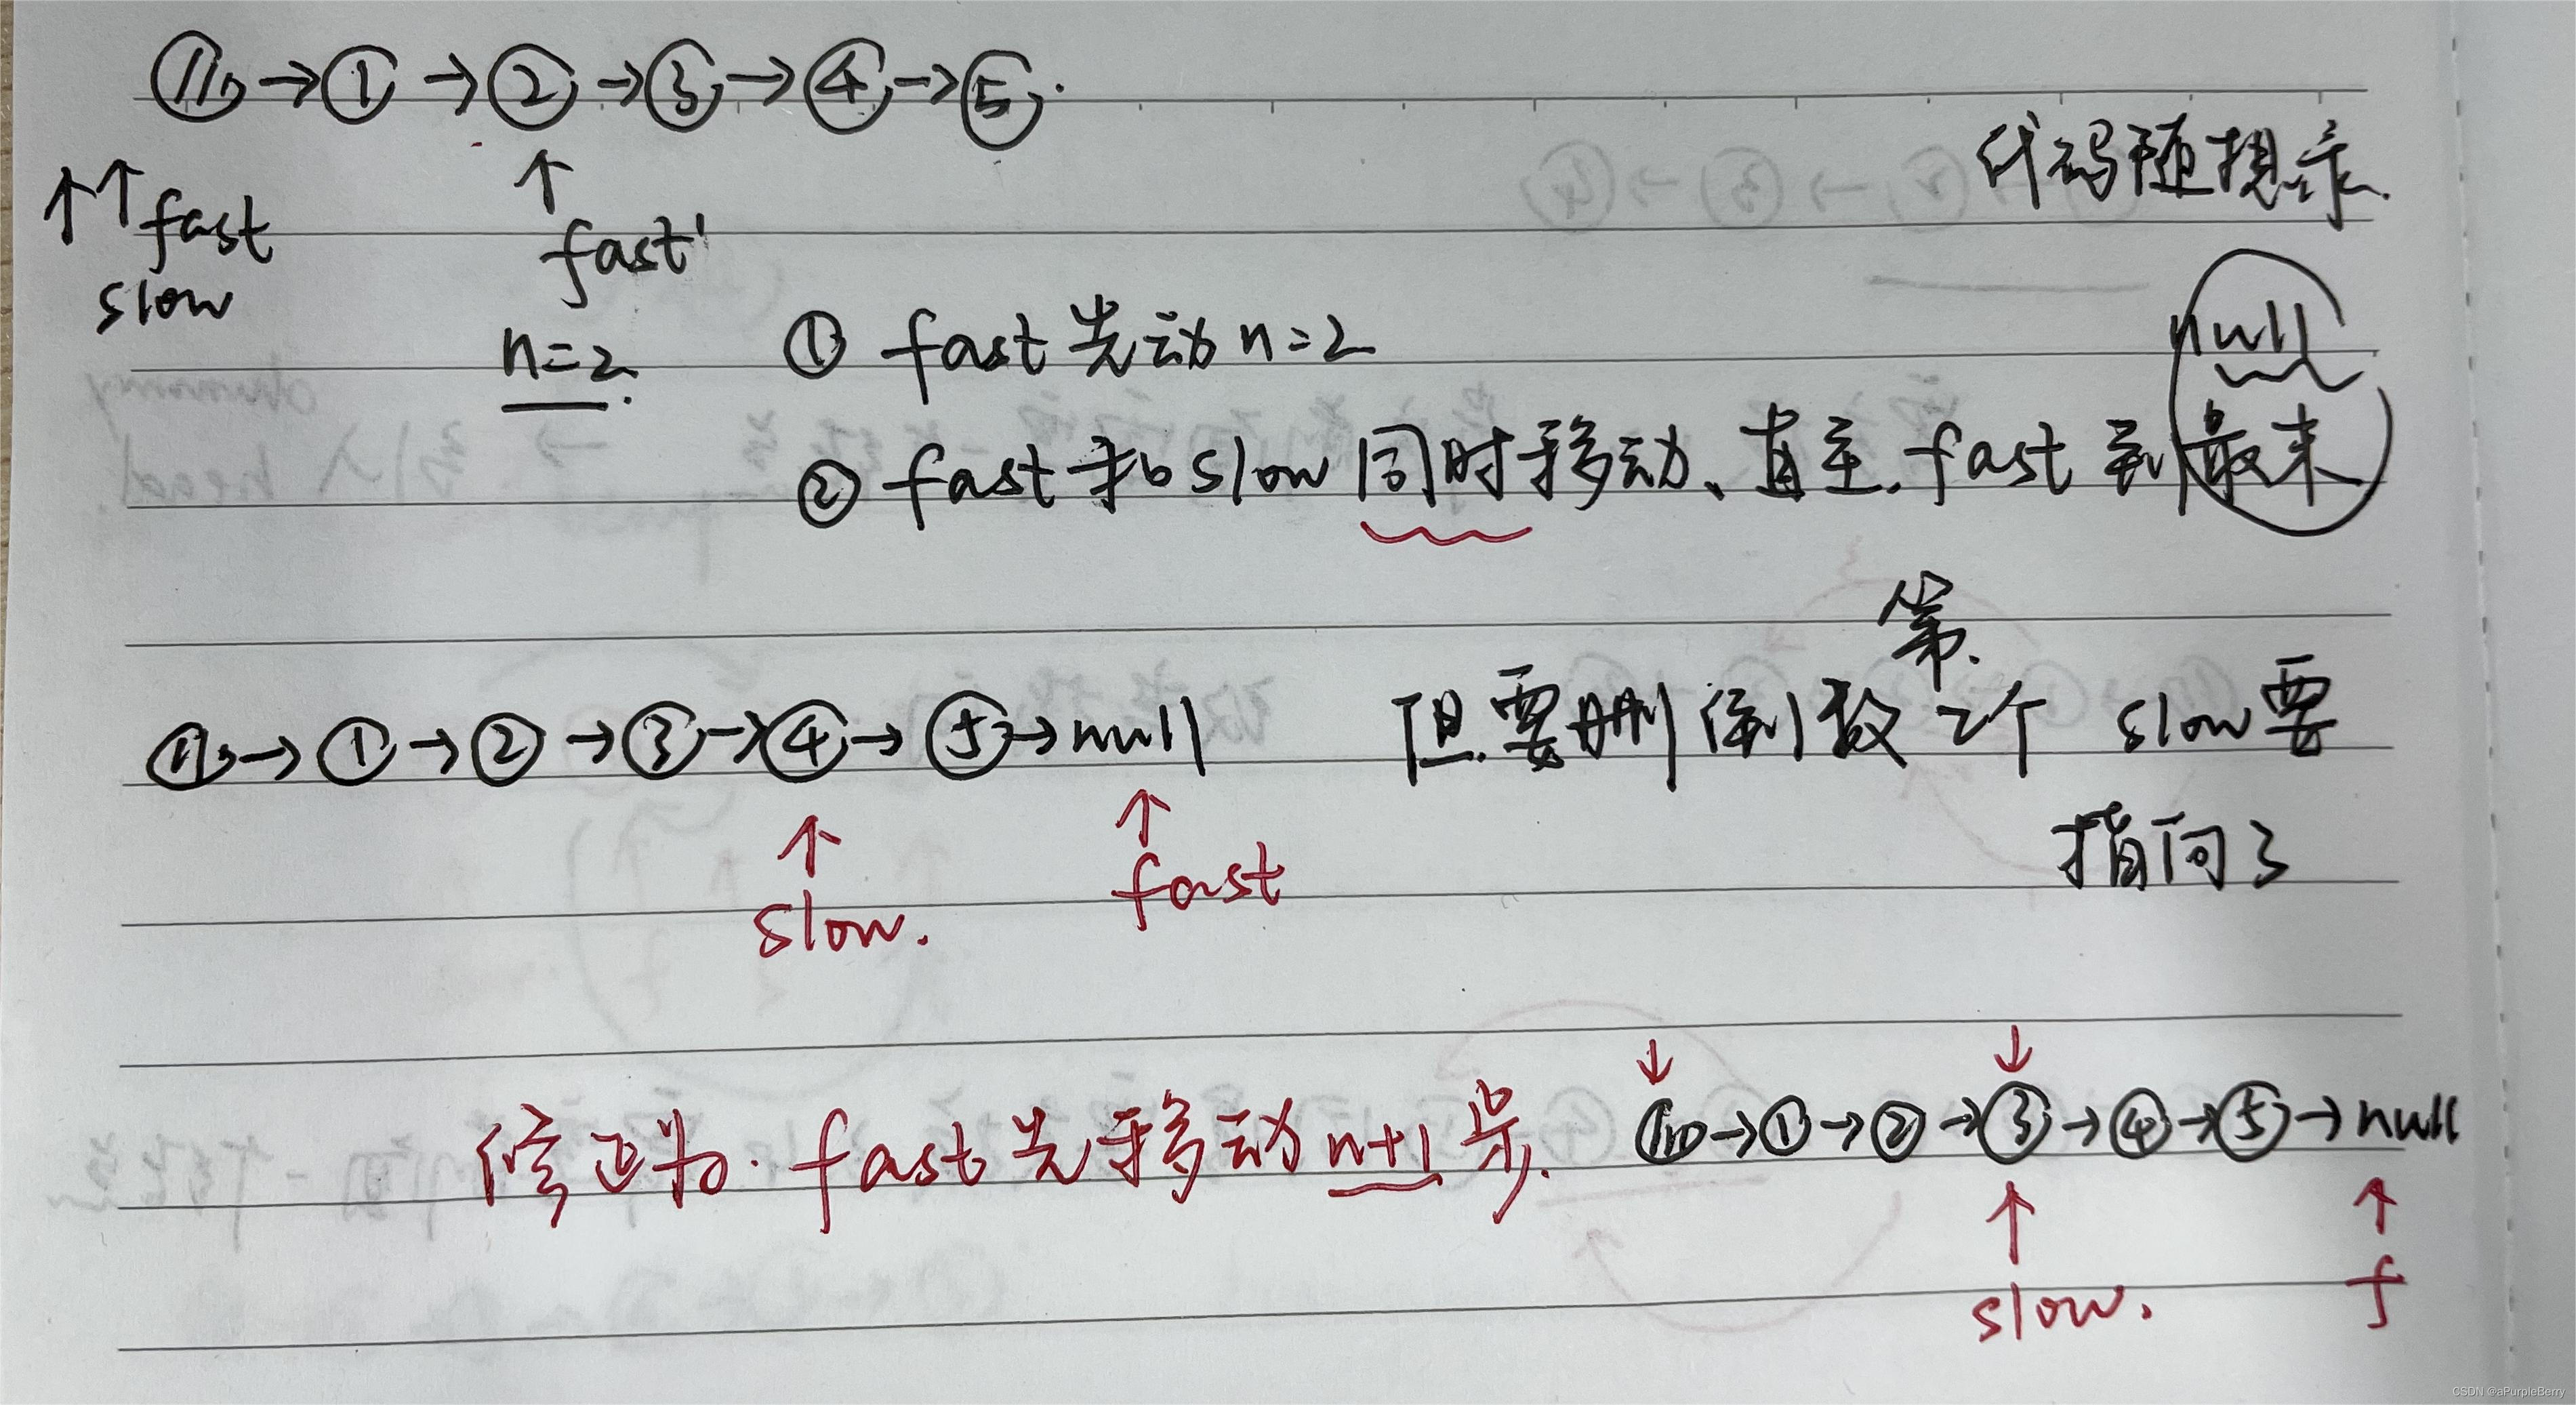 ① → ② → ③ → ④ → ⑤
代码随想录
↑↑ fast
↑
slow
fast'
n=2
① fast 先动 n=2
null
② fast 和 slow 同时移动、直至 fast 到最末
→ ① → ② → ③ → ④ → ⑤ → null
但要删倒数第2个 slow要
指向3
↑ slow.
↑ fast
修正为. fast 先移动 n+1 步.
↓ ↓
→ ① → ② → ③ → ④ → ⑤ → null
↑ slow.
↑ f
CSDN @aPurpleBerry